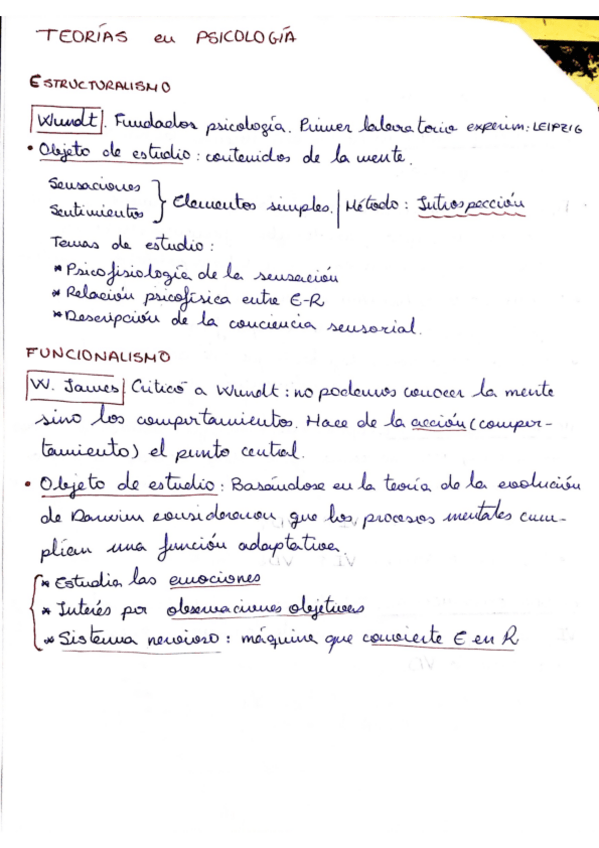 TEORÍAS en PSICOLOGÍA
ESTRUCTURALISMO
Wundt. Fundador psicología. Primer laboratorio experim: LEIPZIG
• Objeto de estudio: contenidos de la mente.
Sensaciones
Sentimientos } Elementos simples. | Método: Introspección
Temas de estudio:
* Psicofisiología de la sensación
* Relación psicofísica entre E-R
* Descripción de la conciencia sensorial.
FUNCIONALISMO
W. James Criticó a Wundt: no podemos conocer la mente
sino los comportamientos. Hace de la acción (compor-
tamiento) el punto central.
• Objeto de estudio: Basándose en la teoría de la evolución
de Darwin consideraron, que los, procesos mentales cum-
plían una función adaptativa.
* Estudia las emociones
* Interés por observaciones objetivas
* Sistema nervioso: máquina que convierte E en R